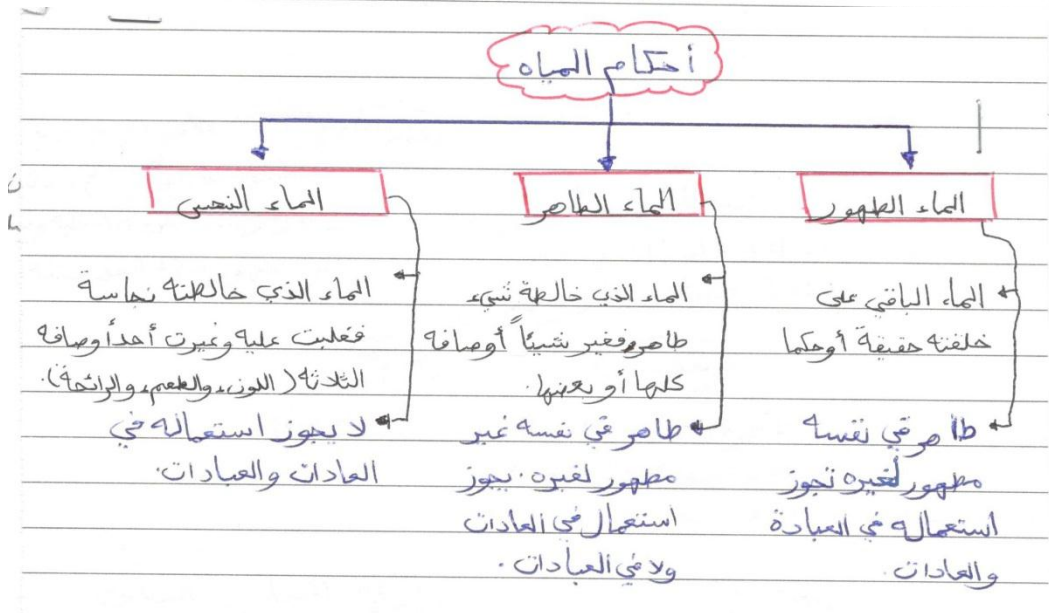 أحكام المياه
الماء الطهور
الماء الباقي على
خلقته حقيقة أو حكما
طاهر في نفسه
مطهور لغيره تجوز
استعماله في العبادة
والعادات.
الماء الطاهر
الماء الذي خالطة شيء
طاهر فغير شيئاً أوصافه
كلها أو بعضها.
طاهر في نفسه غير
مطهور لغيره. يجوز
استعمال في العادات
ولا في العبادات.
الماء النجس
الماء الذي خالطته نجاسة
فغلبت عليه وغيرت أحد أوصافه
الثلاثة (اللون، والطعم، والرائحة).
لا يجوز استعماله في
العادات والعبادات.